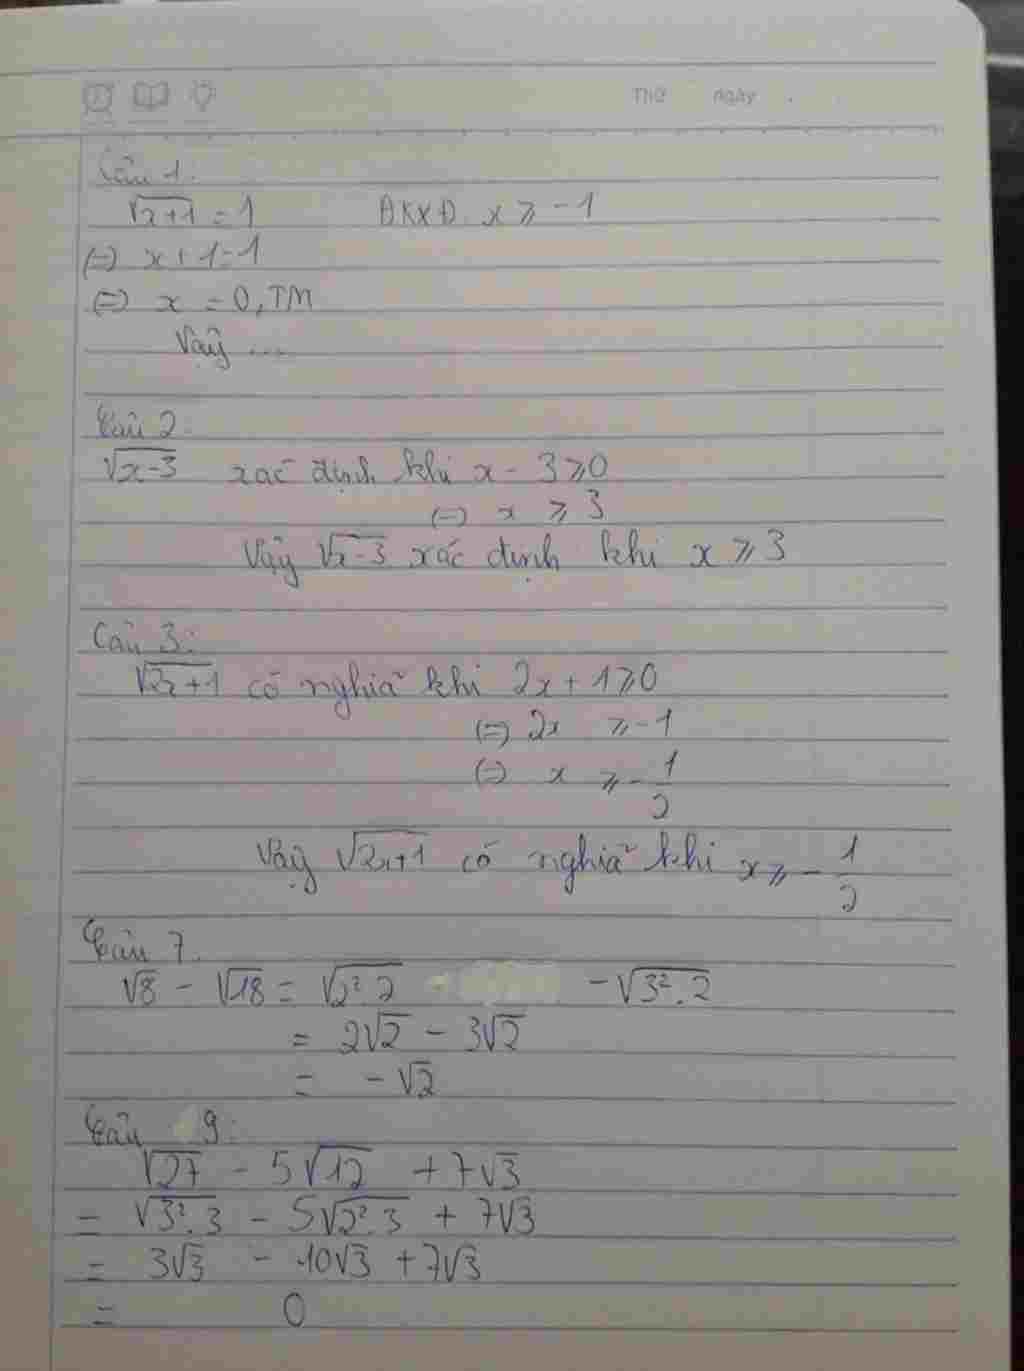 THỨ NGÀY
Câu 1.
√x+1 = 1 ĐKXĐ. x ⩾ -1
(=) x + 1 = 1
(=) x = 0, TM
Vậy ...
Câu 2.
√x-3 xác định khi x - 3 ⩾ 0
(=) x ⩾ 3
Vậy √x-3 xác định khi x ⩾ 3
Câu 3:
√2x+1 có nghĩa khi 2x + 1 ⩾ 0
(=) 2x ⩾ -1
(=) x ⩾ -1/2
Vậy √2x+1 có nghĩa khi x ⩾ -1/2
Câu 7.
√8 - √18 = √2².2 - √3².2
= 2√2 - 3√2
= -√2
Câu 9:
√27 - 5√12 + 7√3
= √3².3 - 5√2².3 + 7√3
= 3√3 - 10√3 + 7√3
= 0